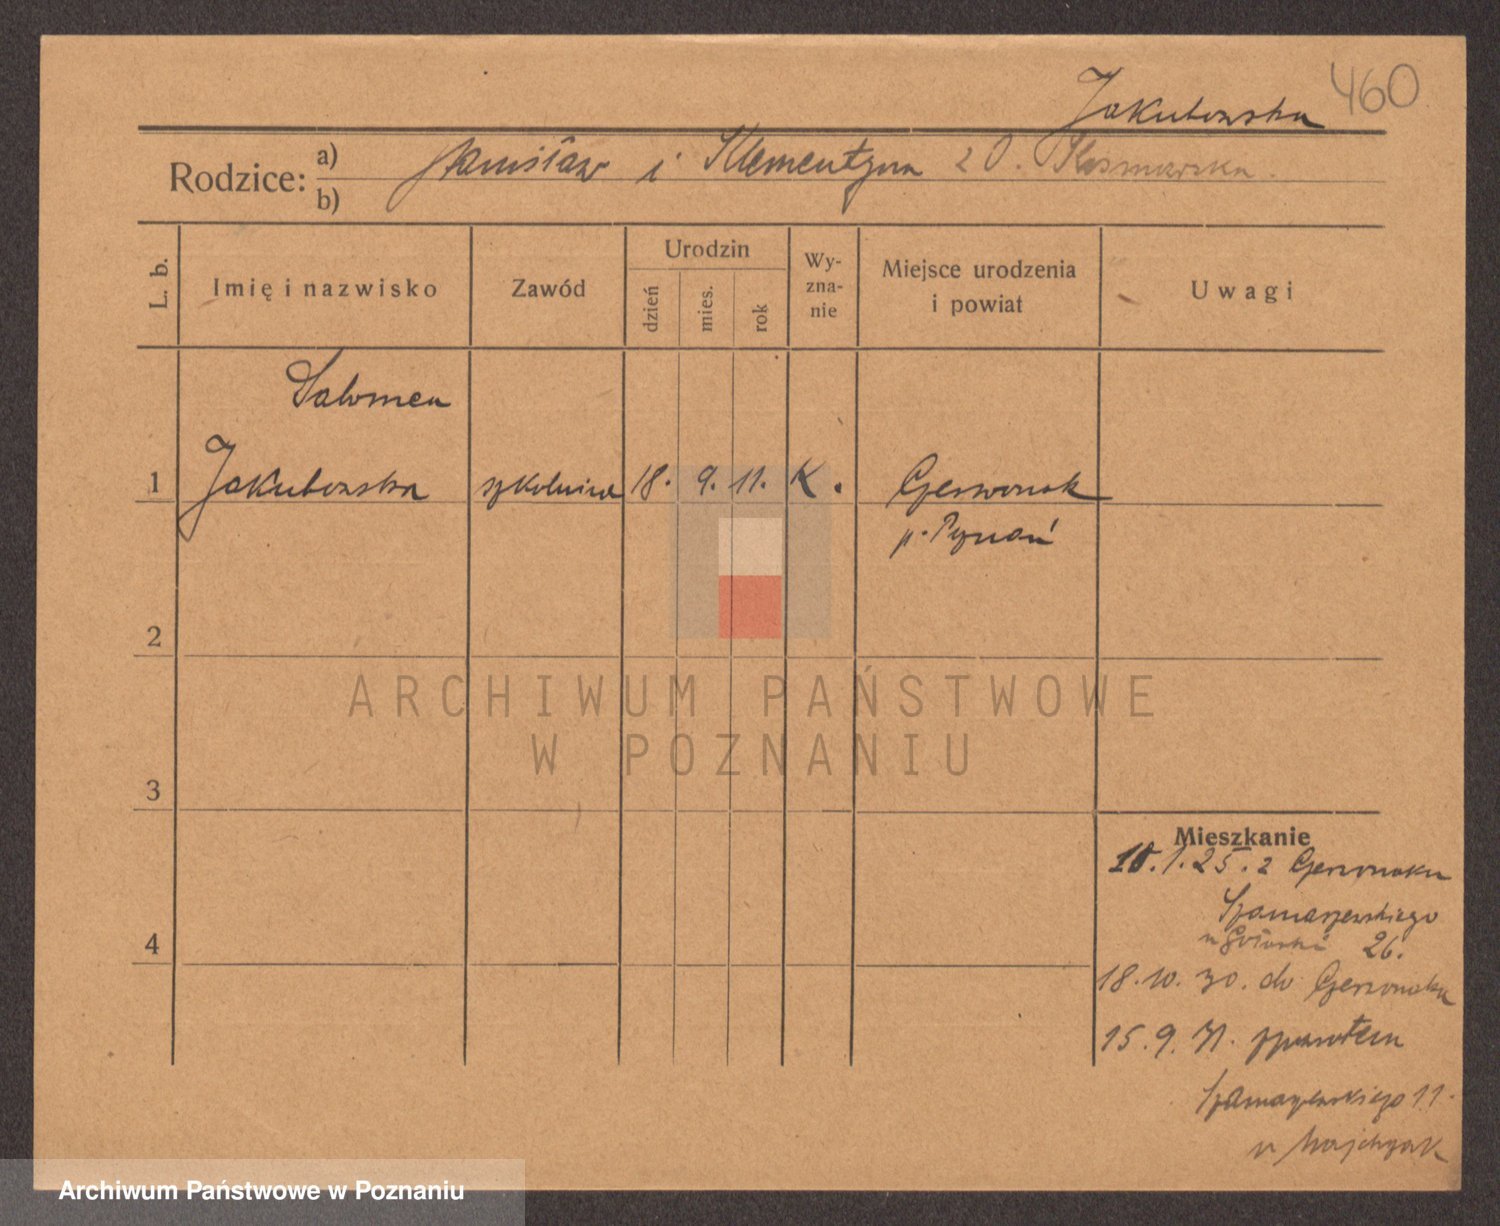 Jakubowska 460
Rodzice: a) Stanisław i Klementyna
b)
L. b.
Imię i nazwisko
Zawód
Urodzin
dzień
mies.
rok
Wy-
zna-
nie
Miejsce urodzenia
i powiat
Uwagi
Salomea
1 Jakubowska szkolnica 18. 9. 11. K. Czerwonak
p. Poznań
2
ARCHIWUM PAŃSTWOWE
W POZNANIU
3
Mieszkanie
10.1.25. z Czerwonaku
Szamarzewskiego
4
26.
18.10.30. do Czerwonaku
15.9.31. zpowrotem
Szamarzewskiego 11.
u Majchrzak
Archiwum Państwowe w Poznaniu